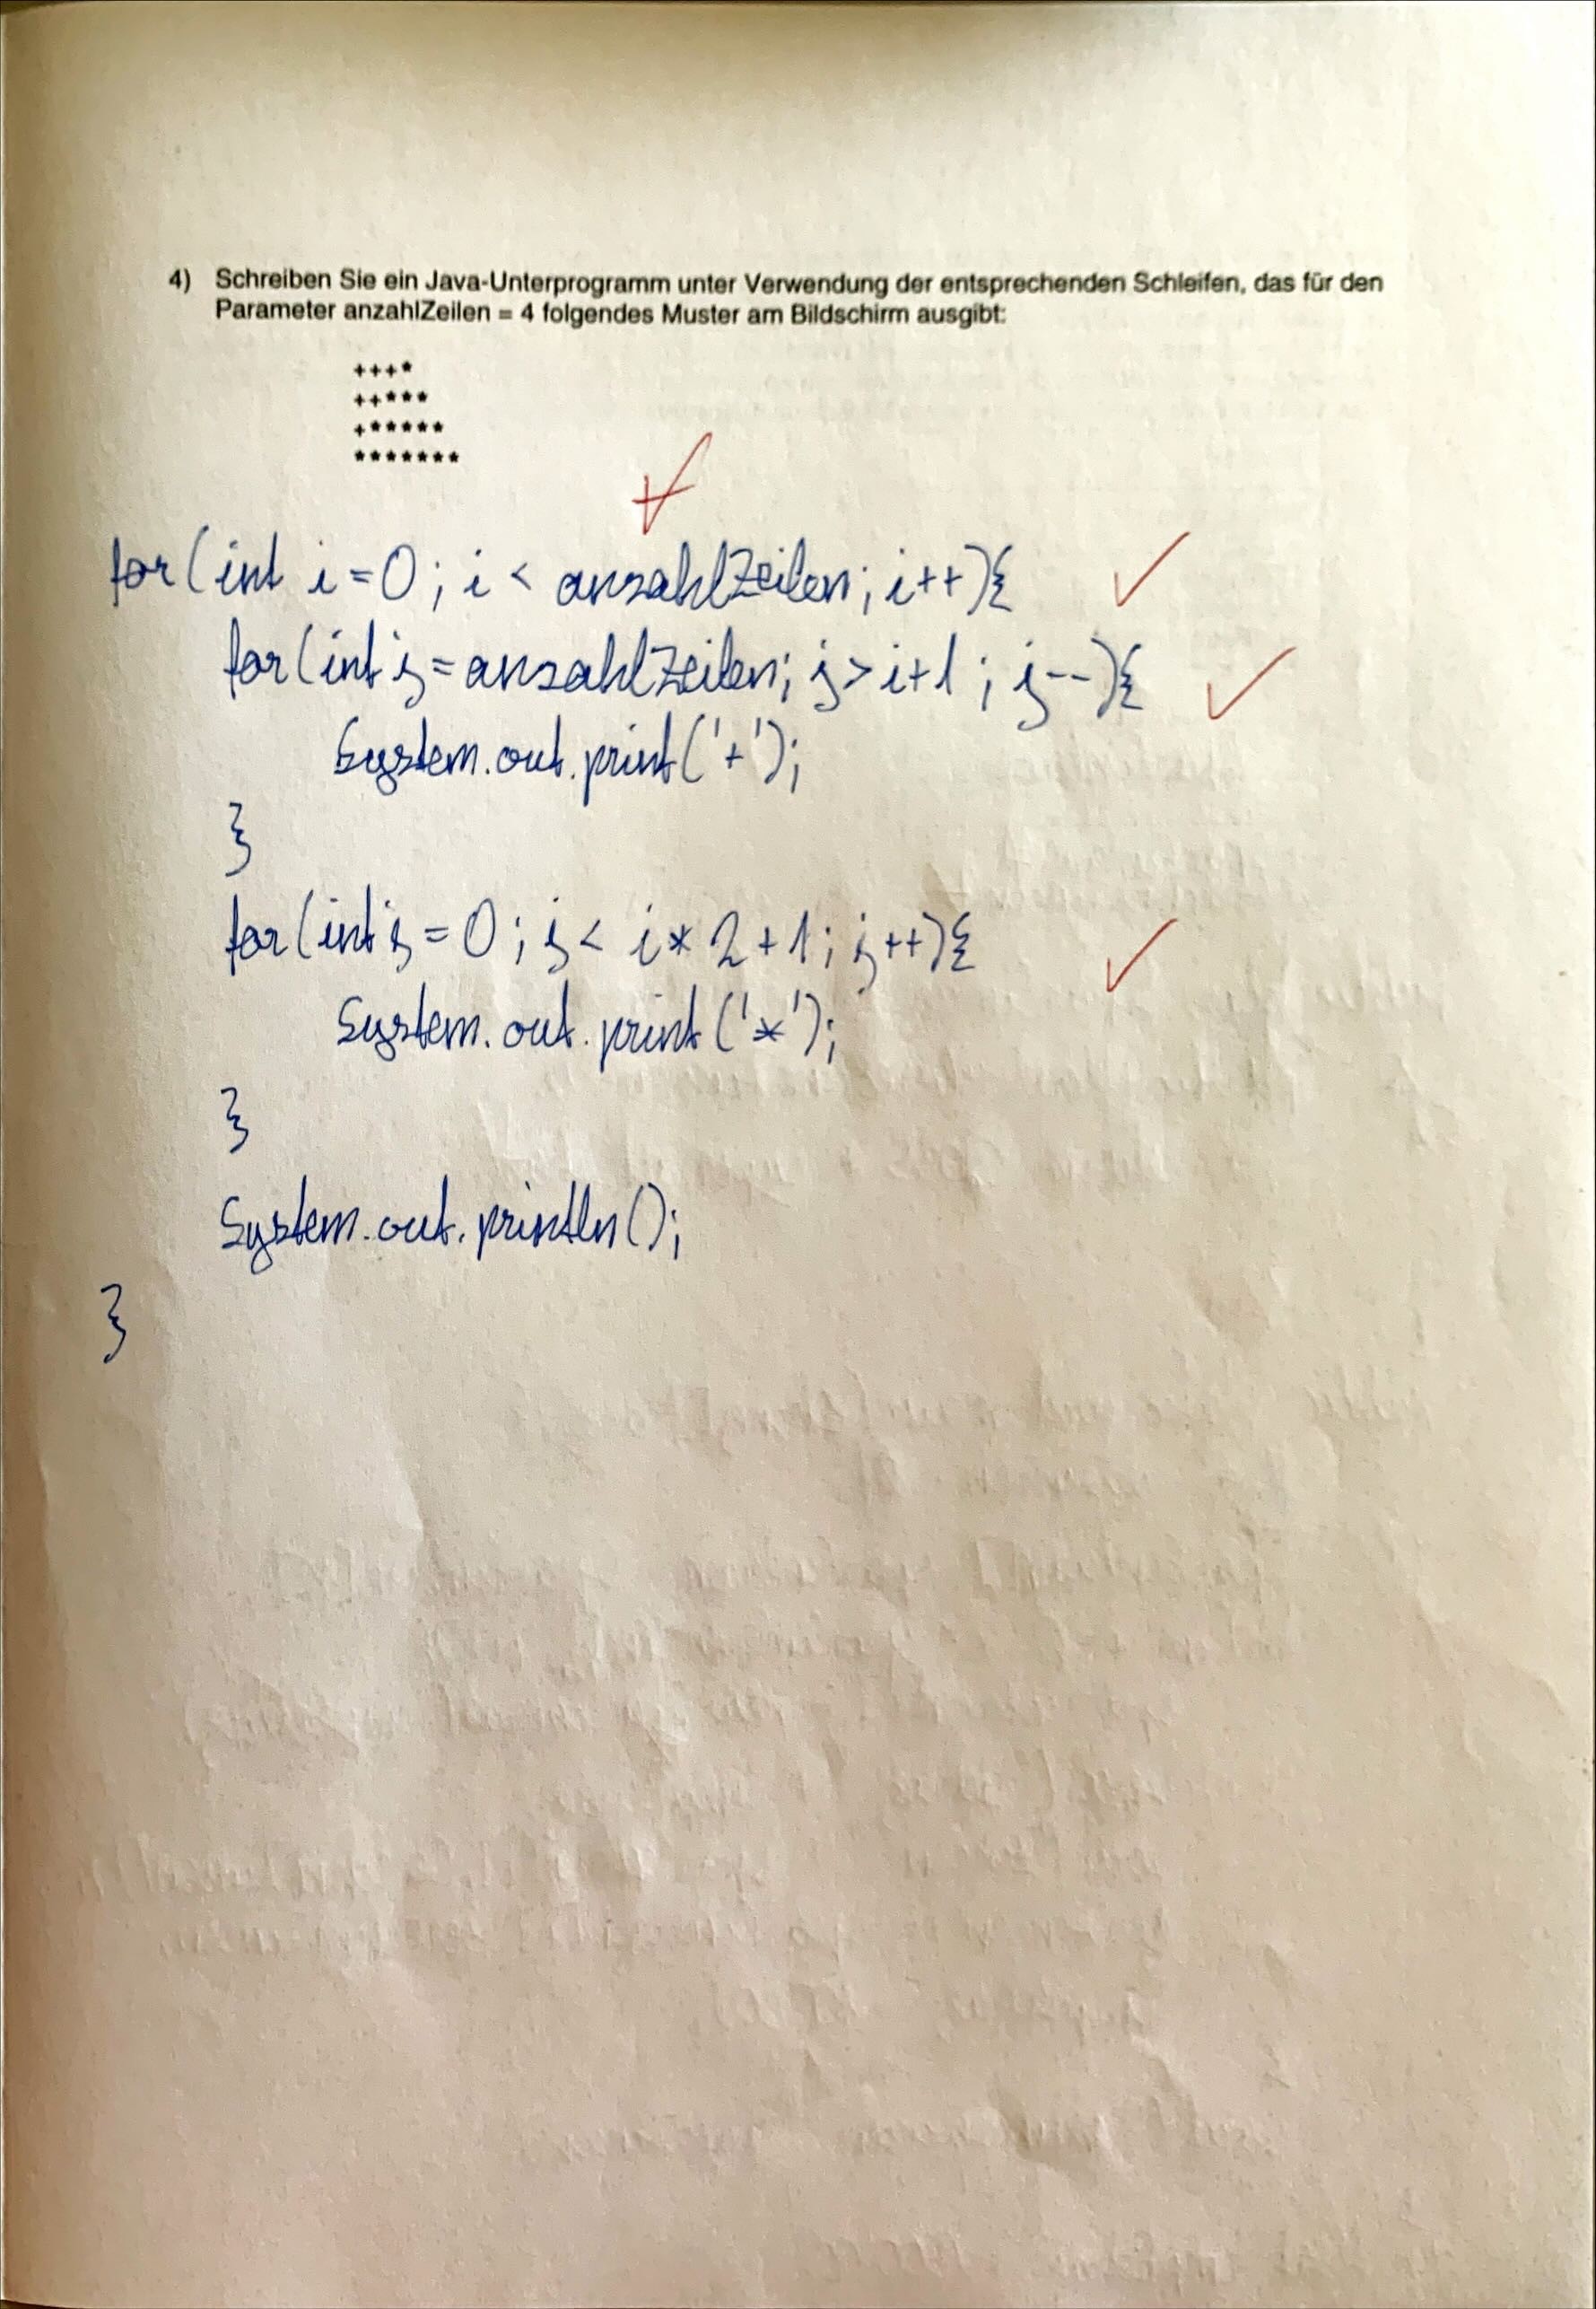 4) Schreiben Sie ein Java-Unterprogramm unter Verwendung der entsprechenden Schleifen, das für den
Parameter anzahlZeilen = 4 folgendes Muster am Bildschirm ausgibt:
+++*
++***
+*****
*******
for(int i=0; i < anzahlZeilen; i++){
for(int j=anzahlZeilen; j>i+1; j--){
System.out.print('+');
}
for(int j=0; j< i*2+1; j++){
System.out.print('*');
}
System.out.println();
}